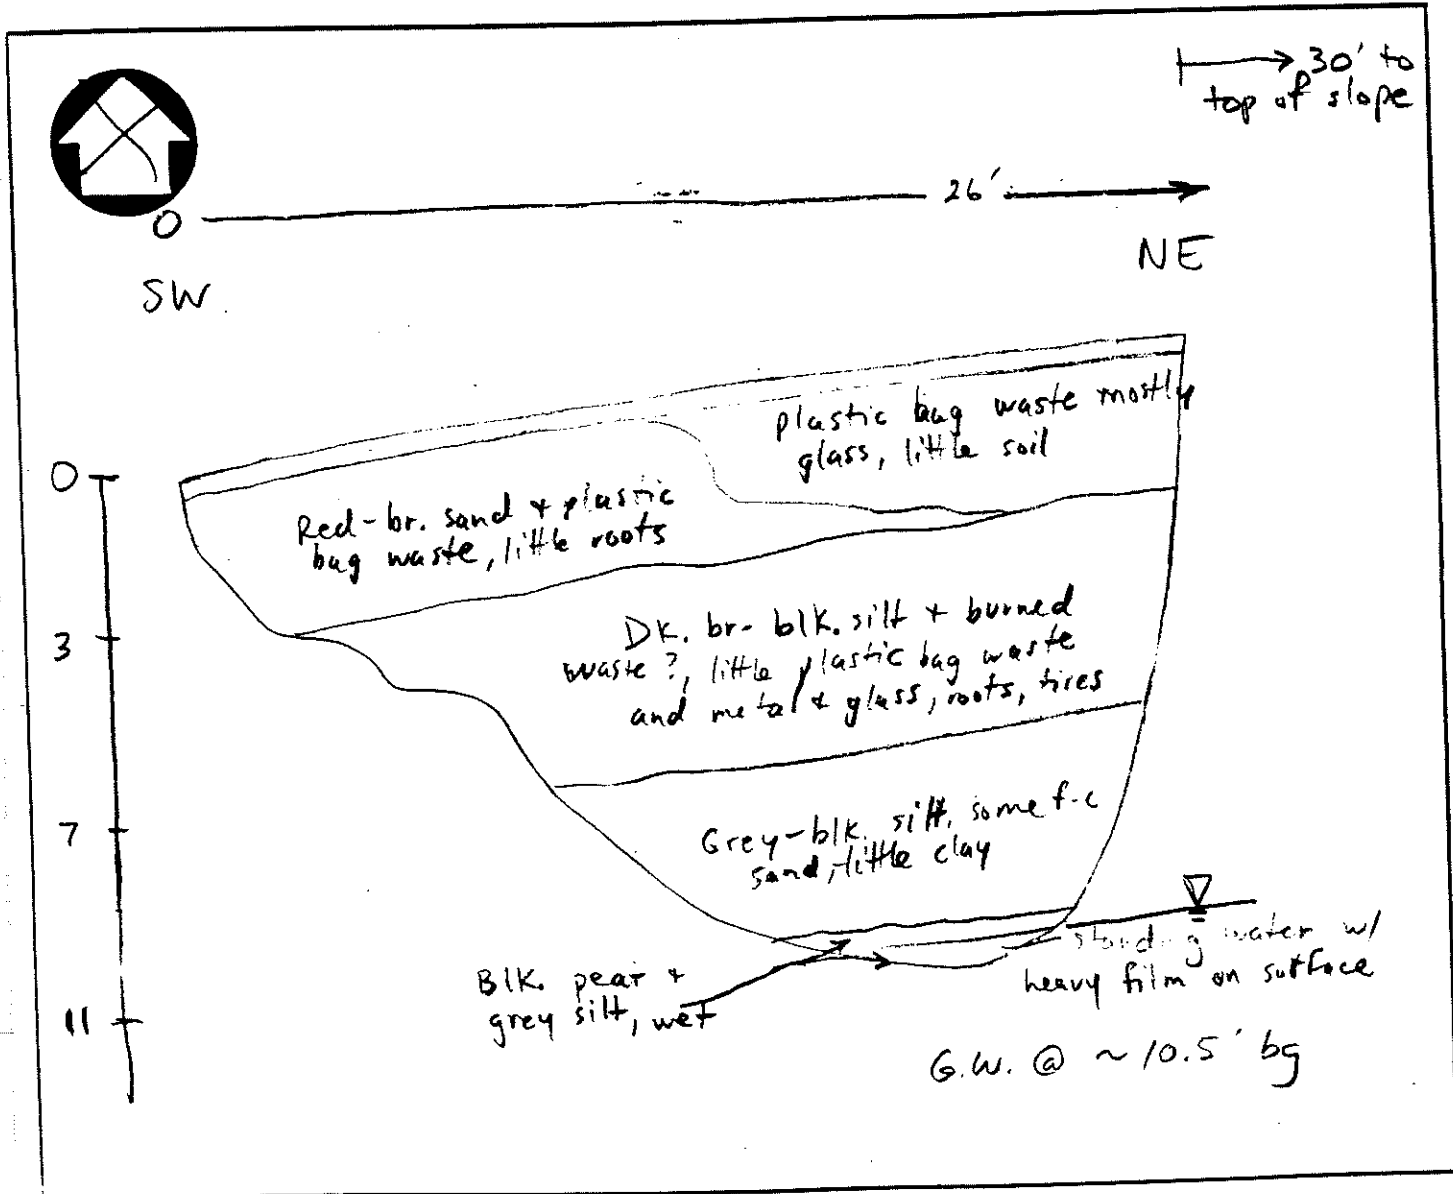 30' to
top of slope
0
26'
SW
NE
plastic bag waste mostly
glass, little soil
0
Red-br. sand + plastic
bag waste, little roots
3
Dk. br- blk. silt + burned
waste?, little plastic bag waste
and metal + glass, roots, tires
7
Grey-blk. silt, some f-c
sand, little clay
standing water w/
heavy film on surface
Blk. peat +
grey silt, wet
11
G.W. @ ~10.5' bg